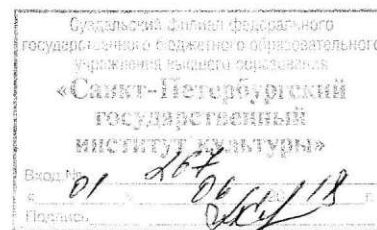 Суздальский филиал федерального
государственного бюджетного образовательного
учреждения высшего образования
«Санкт-Петербургский
государственный
институт культуры»
Вход.№ 267
« 01 » 06 20 18 г.
Подпись